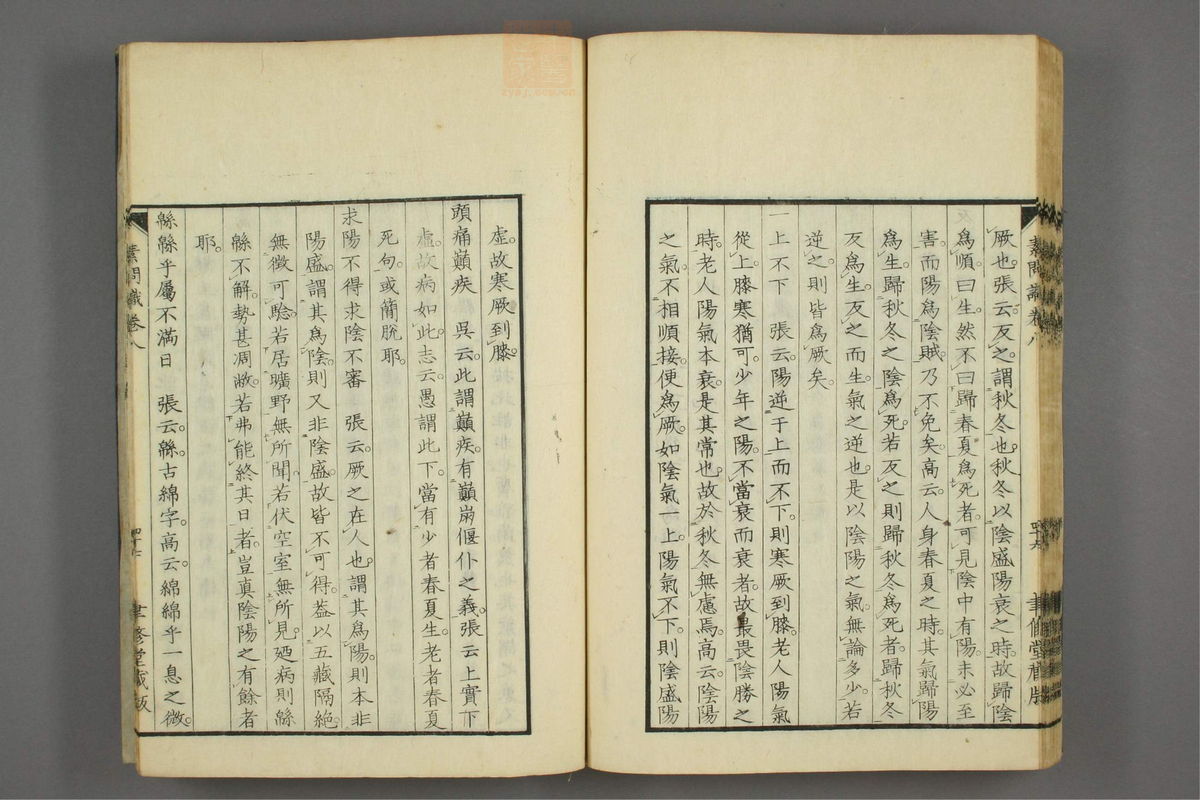 厥也張云反之謂秋冬也秋冬以陰盛陽衰之時故歸陰
爲順曰生然不曰歸春夏爲死者可見陰中有陽未必至
害而陽爲陰賊乃不免矣高云人身春夏之時其氣歸陽
爲生歸秋冬之陰爲死若反之則歸秋冬爲死者歸秋冬
反爲生反之而生氣之逆也是以陰陽之氣無論多少若
逆之則皆爲厥矣
一上不下 張云陽逆于上而不下則寒厥到膝老人陽氣
從上膝寒猶可少年之陽不當衰而衰者故最畏陰勝之
時老人陽氣本衰是其常也故於秋冬無慮焉高云陰陽
之氣不相順接便爲厥如陰氣一上陽氣不下則陰盛陽
素問識卷八 四十六 聿修堂藏版
虛故寒厥到膝
頭痛巔疾 吳云此謂巔疾有巔崩偃仆之義張云上實下
虛故病如此志云愚謂此下當有少者春夏生老者春夏
死句或簡脫耶
求陽不得求陰不審 張云厥之在人也謂其爲陽則本非
陽盛謂其爲陰則又非陰盛故皆不可得蓋以五藏隔絕
無徵可驗若居曠野無所聞若伏空室無所見廼病則緜
緜不解勢甚凋敝若弗能終其日者豈真陰陽之有餘者
耶
緜緜乎屬不滿日 張云緜古綿字高云綿綿乎一息之微
素問識卷八 四十七 聿修堂藏版